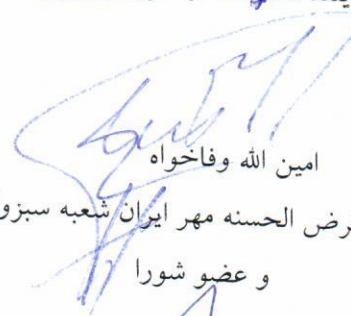 امین الله وفاخواه
رض الحسنه مهر ایران شعبه سبزو
و عضو شورا